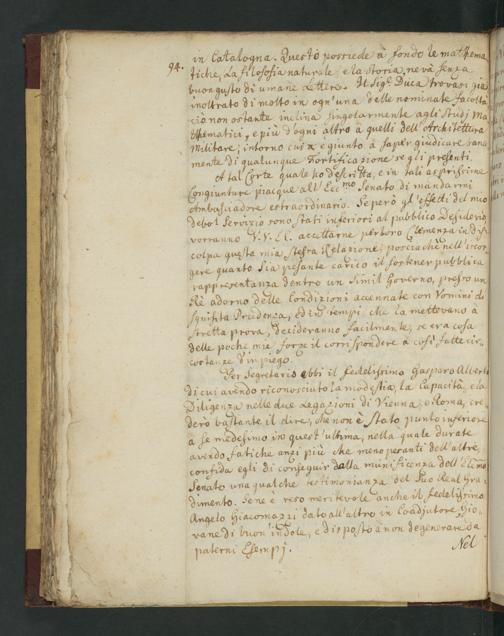 in Catalogna. Questo possiede à fondo le mathema
94.
tiche, La filosofia naturale, e la storia, ne và senza
buon gusto di umane Lettere. Il Sig.r Duca trovasi già
inoltrato di molto in ogn'una delle nominate facoltà
ciò non ostante inclina singolarmente agli studj Ma
thematici, e più d'ogni altro à quelli dell'Architettura
Militare; intorno cui è giunto à saper giudicare sana
mente di qualunque Fortificazione se gli presenti.
A tal Corte quale hò descritta, e in tali asprissime
Congiunture piacque all'Ecc.mo Senato di mandarmi
Ambasciadore estraordinario. Se però gl'effetti del mio
debol Servizio sono stati inferiori al pubblico Desiderio,
vorranno V.V. E.E. accettarne per loro Clemenza in dis
colpa questa mia stessa Relazione; poscia che nell'iscor
gere quanto sia pesante carico il sostener pubblica
rappresentanza dentro un simil Governo, presso un
Rè adorno delle Condizioni accennate con Uomini di
squisita Prudenza, ed in tempi che la mettevano à
stretta prova, decideranno facilmente, se era cosa
delle poche mie forze il corrispondere à così fatte cir
costanze d'impiego.
Per Segretario ebbi il fedelissimo Gasparo Alberti
di cui avendo riconosciuto la modestia, la Capacità, e la
Diligenza nelle due Legazioni di Vienna, e Roma, cre
derò bastante il dire, che non è stato punto inferiore
à se medesimo in quest'ultima, nella quale durate
avendo fatiche anzi più che meno pesanti dell'altre
confida egli di conseguir dalla munificenza dell'Ecc.mo
Senato una qualche testimonianza del suo Real Gra
dimento. Se ne è reso meritevole anche il fedelissimo
Angelo Giacomazzi dato all'altro in Coadjutore, Gio
vane di buon indole, e disposto à non degenerare da
paterni Esempj.
Nel